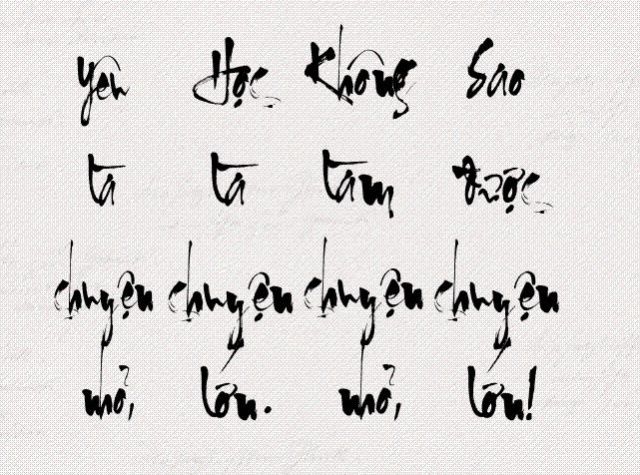 Yên là chuyện nhỏ,
Học là chuyện lớn.
Không làm chuyện nhỏ,
Sao được chuyện lớn!